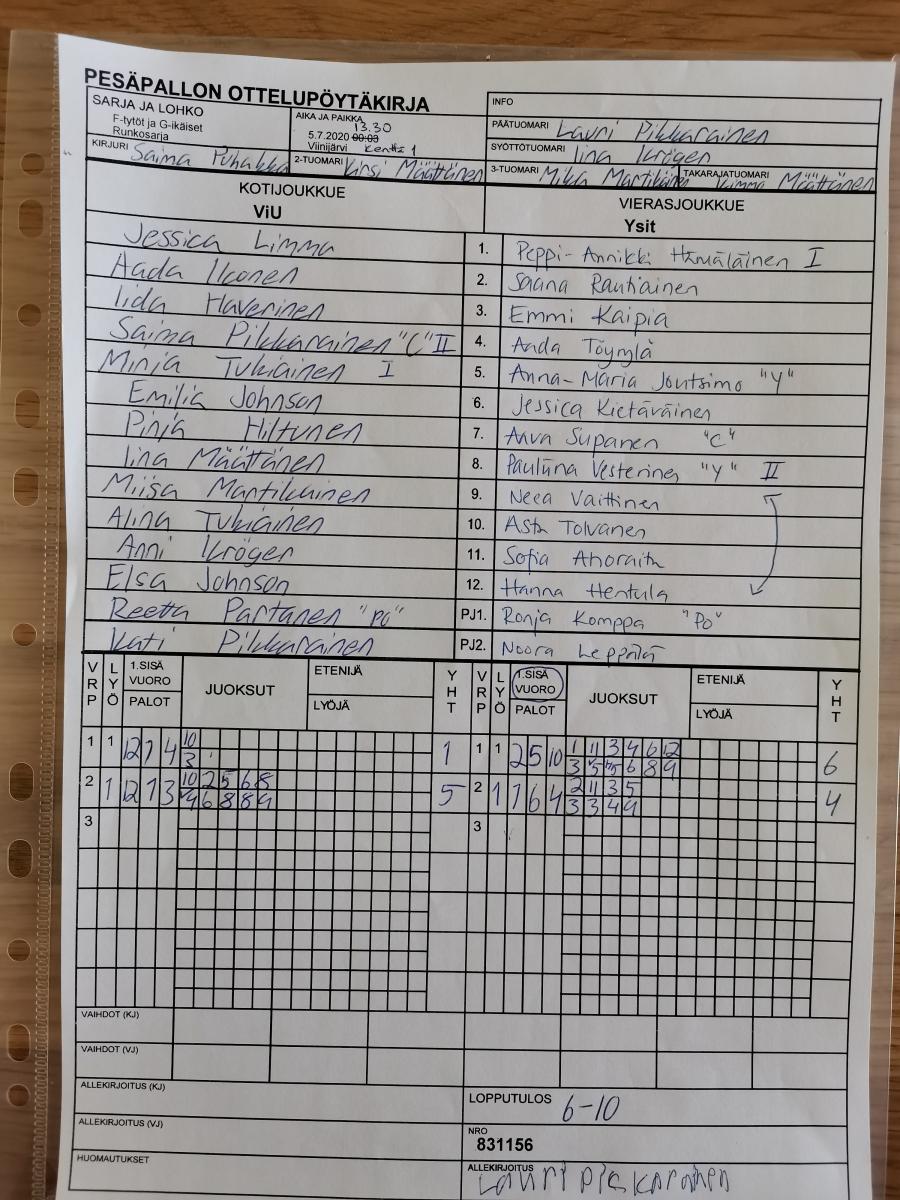 PESÄPALLON OTTELUPÖYTÄKIRJA
SARJA JA LOHKO
F-tytöt ja G-ikäiset
Runkosarja
AIKA JA PAIKKA
13.30
5.7.2020 00:03
Viinijärvi Kenttä 1
INFO
PÄÄTUOMARI Lauri Pikkarainen
SYÖTTÖTUOMARI Iina Kröger
KIRJURI Saima Puhakka
2-TUOMARI Kirsi Määttänen
3-TUOMARI Mika Martikainen
TAKARAJATUOMARI Määttänen
KOTIJOUKKUE
ViU
VIERASJOUKKUE
Ysit
Jessica Limma 1. Peppi-Annikki Hämäläinen I
Aada Ikonen 2. Saana Rautiainen
Iida Haverinen 3. Emmi Kaipia
Saima Pikkarainen "C" II 4. Anda Töyrylä
Minja Tukiainen I 5. Anna-Maria Joutsimo "Y"
Emilia Johnson 6. Jessica Kietäväinen
Pinja Hiltunen 7. Supanen "C"
Iina Määttänen 8. Pauliina Vesterinen "Y" II
Miisa Martikainen 9. Neea Vaittinen
Alina Tukiainen 10. Asta Tolvanen
Anni Kröger 11. Sofia
Elsa Johnson 12. Hanna Hentula
Reetta Partanen "PO" PJ1. Ronja Komppa "Po"
Kati Pikkarainen PJ2. Noora Leppälä
VRP LYÖ 1.SISÄ VUORO PALOT JUOKSUT ETENIJÄ LYÖJÄ YHT VRP LYÖ 1.SISÄ VUORO PALOT JUOKSUT ETENIJÄ LYÖJÄ YHT
1 1 12 1 4 10 1 1 1 2 5 10 1 11 3 4 6 12 6
3 3 5 5 6 8 9
2 1 12 1 3 10 2 5 6 8 5 2 1 1 6 4 2 11 3 5 4
4 6 8 8 9 3 3 4 9
3 3
VAIHDOT (KJ)
VAIHDOT (VJ)
ALLEKIRJOITUS (KJ)
LOPPUTULOS 6-10
ALLEKIRJOITUS (VJ)
NRO
831156
HUOMAUTUKSET
ALLEKIRJOITUS
Lauri Pikkarainen